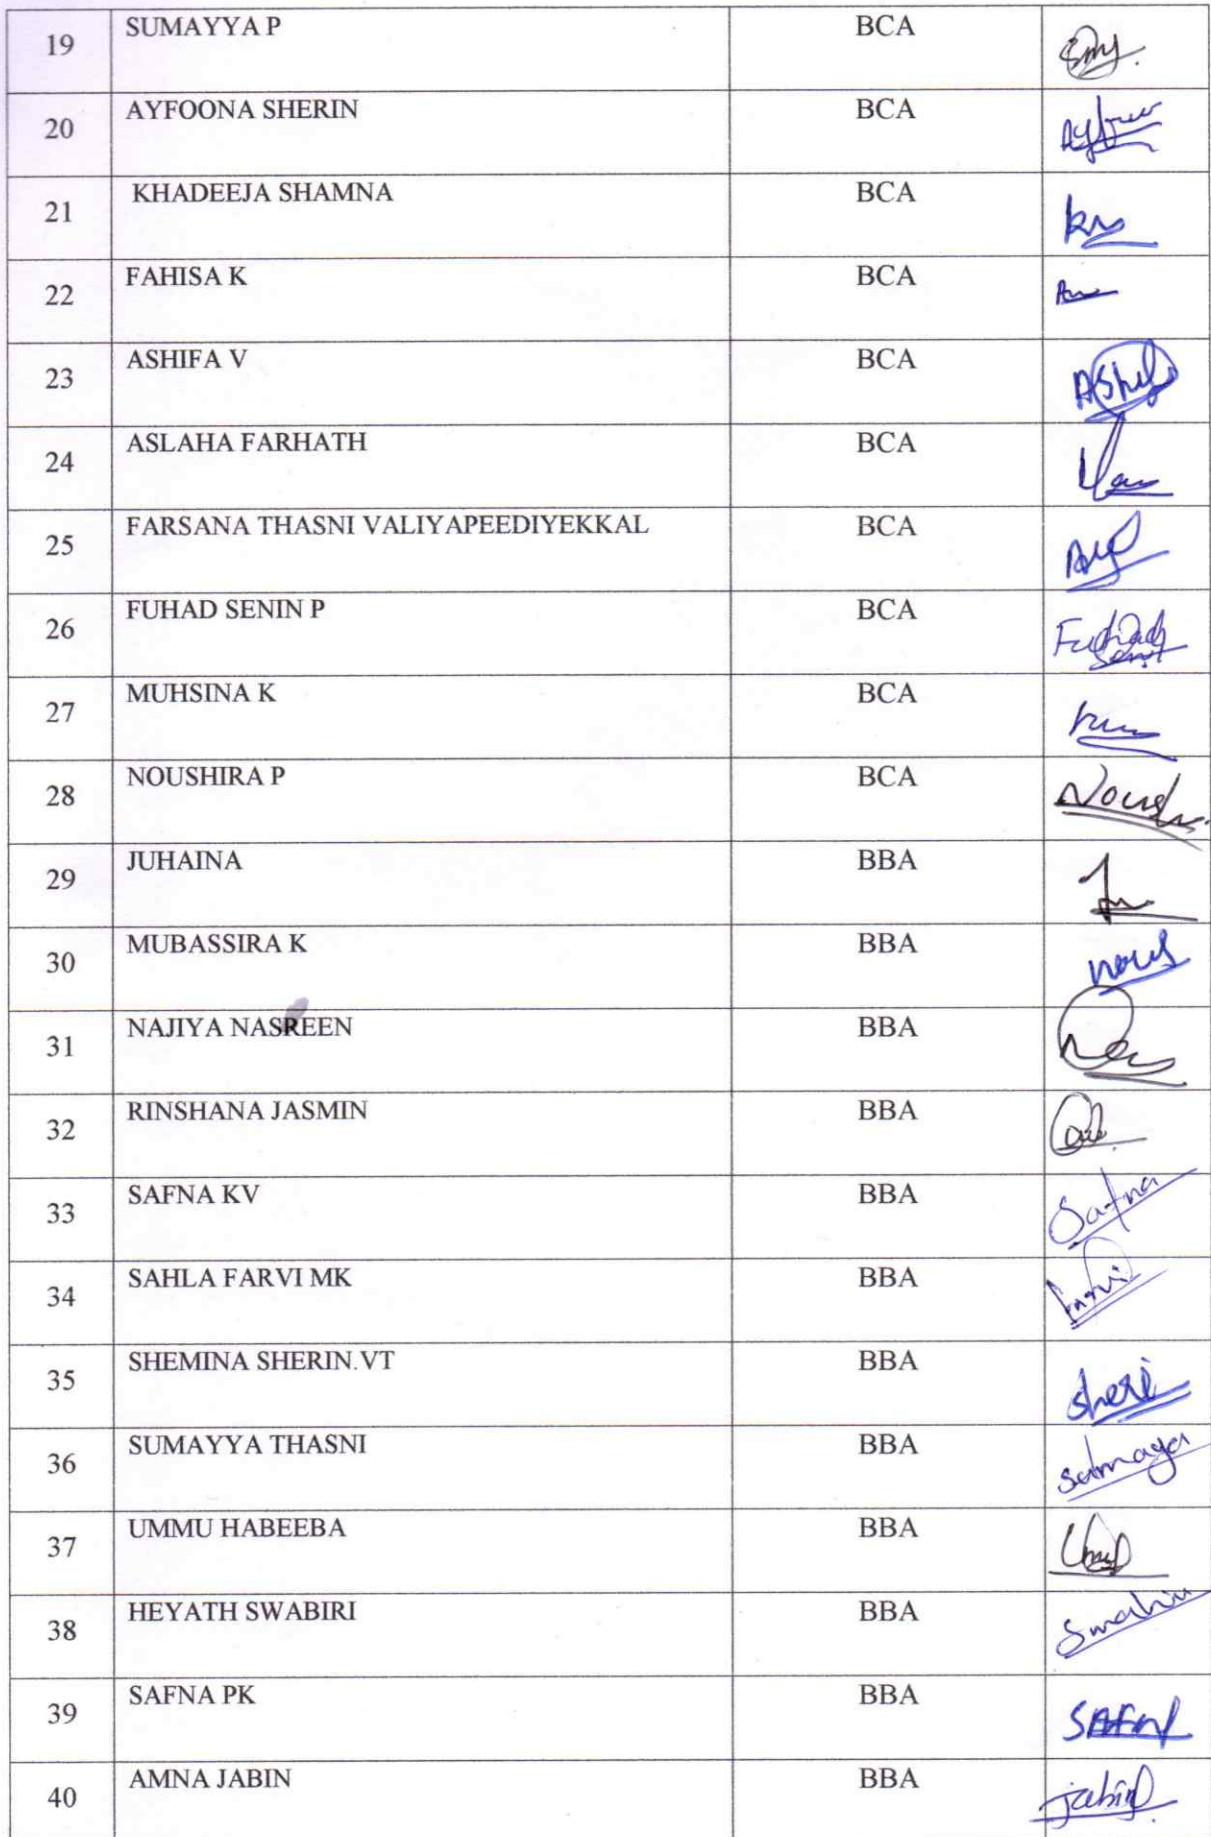 19 SUMAYYA P BCA
20 AYFOONA SHERIN BCA
21 KHADEEJA SHAMNA BCA
22 FAHISA K BCA
23 ASHIFA V BCA
24 ASLAHA FARHATH BCA
25 FARSANA THASNI VALIYAPEEDIYEKKAL BCA
26 FUHAD SENIN P BCA Fuhad
27 MUHSINA K BCA
28 NOUSHIRA P BCA
29 JUHAINA BBA
30 MUBASSIRA K BBA
31 NAJIYA NASREEN BBA
32 RINSHANA JASMIN BBA
33 SAFNA KV BBA Safna
34 SAHLA FARVI MK BBA
35 SHEMINA SHERIN.VT BBA Sheri
36 SUMAYYA THASNI BBA
37 UMMU HABEEBA BBA
38 HEYATH SWABIRI BBA
39 SAFNA PK BBA
40 AMNA JABIN BBA jabin